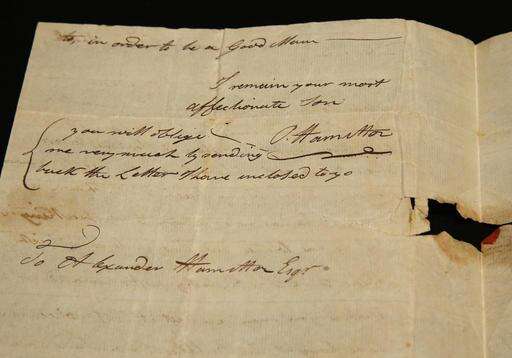 to, in order to be a Good Man
I remain your most
affectionate Son
P. Hamilton
you will oblige
me very much by sending
back the Letter I have inclosed to yo
To Alexander Hamilton Esqr